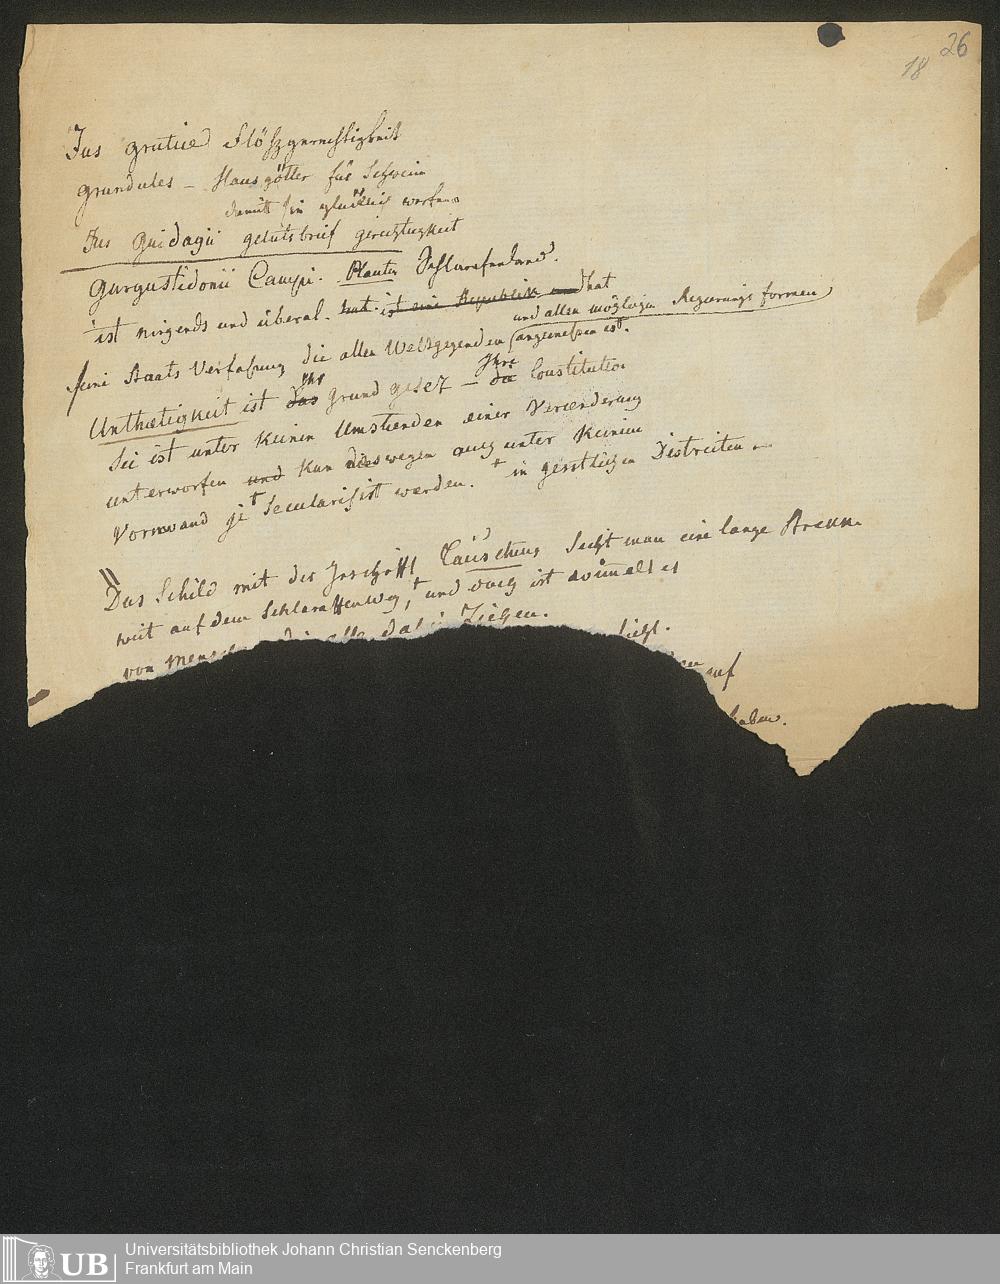 26
18
Jus grutiæ Flößgerechtigkeit
grundules – Hausgötter für Schwein
damit sie glücklich werfen
Jus Guidagii geleitsbrief gerechtigkeit
Gurgustidonii Campi. Plautus Schlarafenland.
ist nirgends und überal. hat. ist eine Republik und hat
und allen möglichen Regierungs formen
seine Staats Verfaßung die allen Weltgegenden angemeßen ist.
Ihr Ihre
Unthætigkeit ist das Grund gesez – die Constitution
Sei ist unter keinen Umstænden einer Verænderung
unterworfen und kan dieswegen auch unter keinem
Vorwand je Secularisirt werden. † in geistlichen Districten
Das Schild mit der Inschrift Täuschung Sieht man eine lange Streke
weit auf dem Schlaraffenweg, † und doch ist wimelt es
von Mensch die alle dahin Ziehen.
sieht.
auf
haben.
UB Universitätsbibliothek Johann Christian Senckenberg
Frankfurt am Main